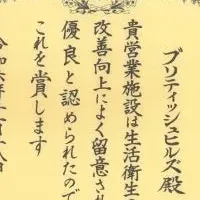 ブリティッシュヒルズ殿
貴営業施設は生活衛生の
改善向上によく留意され
優良と認められたので
これを賞します
令和六年十一月十八日